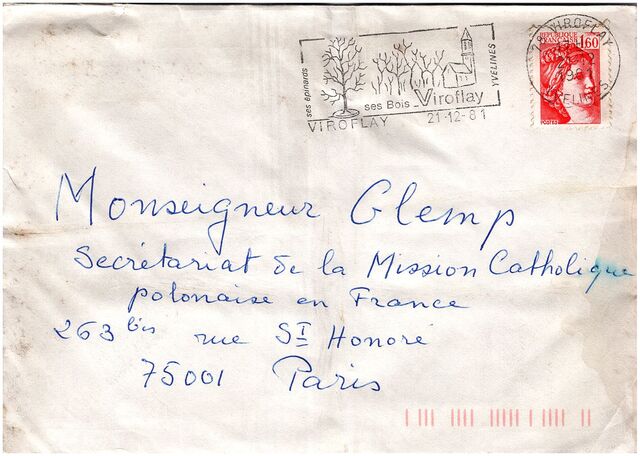 ses épinards
ses Bois Viroflay
YVELINES
VIROFLAY 21-12-81
VIROFLAY
REPUBLIQUE
FRANÇAISE 1,60
Monseigneur Glemp
Secrétariat de la Mission Catholique
polonaise en France
263 bis rue St Honoré
75001 Paris